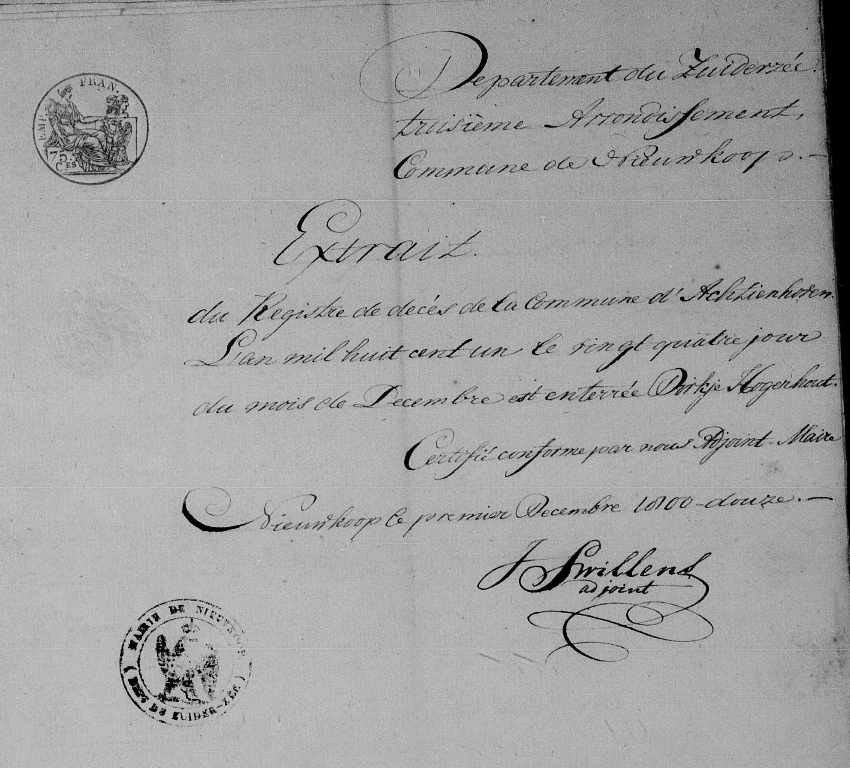 EMP. FRAN.
75 CES
Departement du Zuiderzée.
troisième Arrondissement,
Commune de Nieuwkoop. —
Extrait.
du Registre de décés de la Commune d'Achtienhoven.
L'an mil huit cent un le vingt quatre jour
du mois de Decembre est enterrée Dirkje Hogenhout.
Certifié conforme par nous Adjoint-Maire
Nieuwkoop le premier Decembre 1800-douze. —
J Swillens
adjoint
MAIRIE DE NIEUWKOOP
( DEP. DE ZUIDER-ZEE )